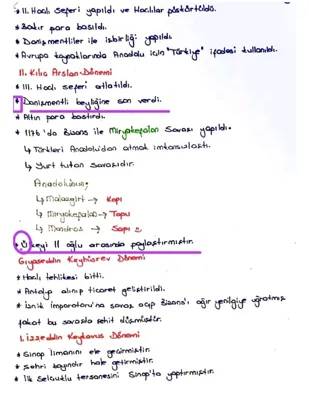 * II. Haçlı Seferi yapıldı ve Haçlılar püskürtüldü.
* Bakır para basıldı.
* Danişmentliler ile işbirliği yapıldı
* Avrupa kaynaklarında Anadolu için "Türkiye" ifadesi kullanıldı.
II. Kılıç Arslan Dönemi
* III. Haçlı seferi atlatıldı.
* Danişmentli beyliğine son verdi.
* Altın para bastırdı.
* 1176'da Bizans ile Miryokefalon Savaşı yapıldı.
↳ Türkleri Anadolu'dan atmak imkansızlaştı.
↳ Yurt tutan savaşıdır.
Anadolunun;
↳ Malazgirt → Kapı
↳ Miryokefalon → Tapu
↳ Mondros → Sapı
* Ülkeyi 11 oğlu arasında paylaştırmıştır.
Gıyaseddin Keyhüsrev Dönemi
* Haçlı tehlikesi bitti.
* Antalya alınıp ticaret geliştirildi.
* İznik İmparatoru'na savaş açıp Bizans'ı ağır yenilgiye uğratmış
fakat bu savaşta şehit düşmüştür.
I. İzzeddin Keykavus Dönemi
* Sinop limanını ele geçirmiştir.
* Şehri bayındır hale getirmiştir.
* İlk Selçuklu tersanesini Sinop'ta yaptırmıştır.